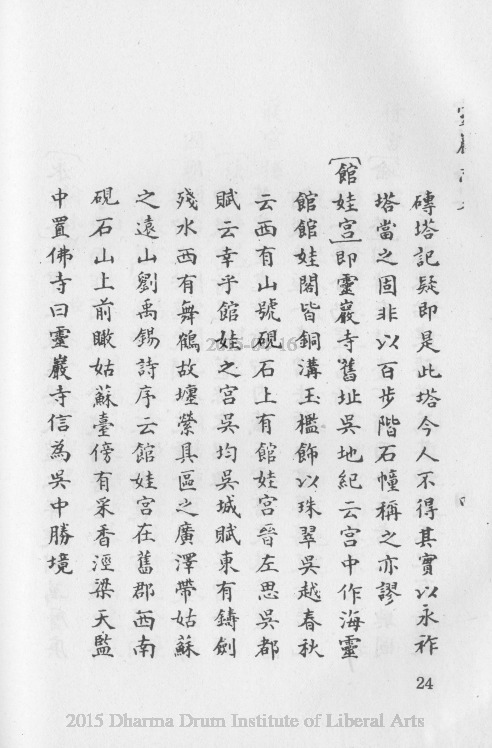 磚塔記疑即是此塔今人不得其實以永祚
塔當之固非以百步階石幢稱之亦謬
〔館娃宮〕即靈巖寺舊址吳地紀云宮中作海靈
館館娃閣皆銅溝玉檻飾以珠翠吳越春秋
云西有山號硯石上有館娃宮晉左思吳都
賦云幸乎館娃之宮吳均吳城賦東有鑄劍
殘水西有舞鶴故壥縈具區之廣澤帶姑蘇
之遠山劉禹錫詩序云館娃宮在舊郡西南
硯石山上前瞰姑蘇臺傍有采香涇梁天監
中置佛寺曰靈巖寺信為吳中勝境
24
2015 Dharma Drum Institute of Liberal Arts